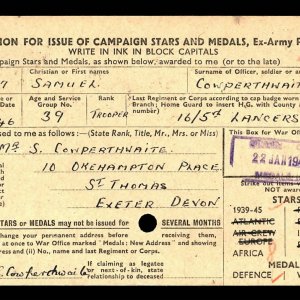 ION FOR ISSUE OF CAMPAIGN STARS AND MEDALS, Ex-Army P
WRITE IN INK IN BLOCK CAPITALS
paign Stars and Medals, as shown below, awarded to me (or to the late)
Christian or First names
Surname of Officer, soldier or a
7 SAMUEL COWPERTHWAITE
Age and Service
Group No.
Rank
Last Regiment or Corps according to cap badge worn
Branch: Home Guard to insert H.G. with County
46 39 TROOPER 16/5th LANCERS
sued to me as follows:— (State Rank, Title, Mr., Mrs. or Miss)
This Box for War Offi
S. COWPERTHWAITE
10 OKEHAMPTON PLACE
ST THOMAS
EXETER DEVON
22 JAN 194
Strike out items
NOT awar
STARS
or MEDALS may not be issued for SEVERAL MONTHS
change your permanent address before receiving them,
at once to War Office marked "Medals: New Address" and showing
(b) All initials and name, (c) last Regiment or Corps.
If claiming as legatee
or next-of-kin, state
relationship to deceased
S. Cowperthwaite
STARS
1939-45
ATLANTIC
AIR CREW
EUROPE
AFRICA
DEFENCE
ME